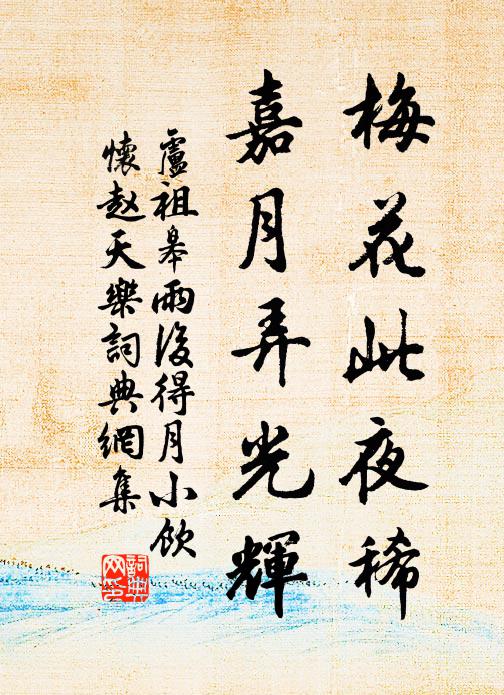 梅花此夜稀
嘉月弄光輝
盧祖皋雨後得月小飲
懷赵天樂詞典網集
詞典